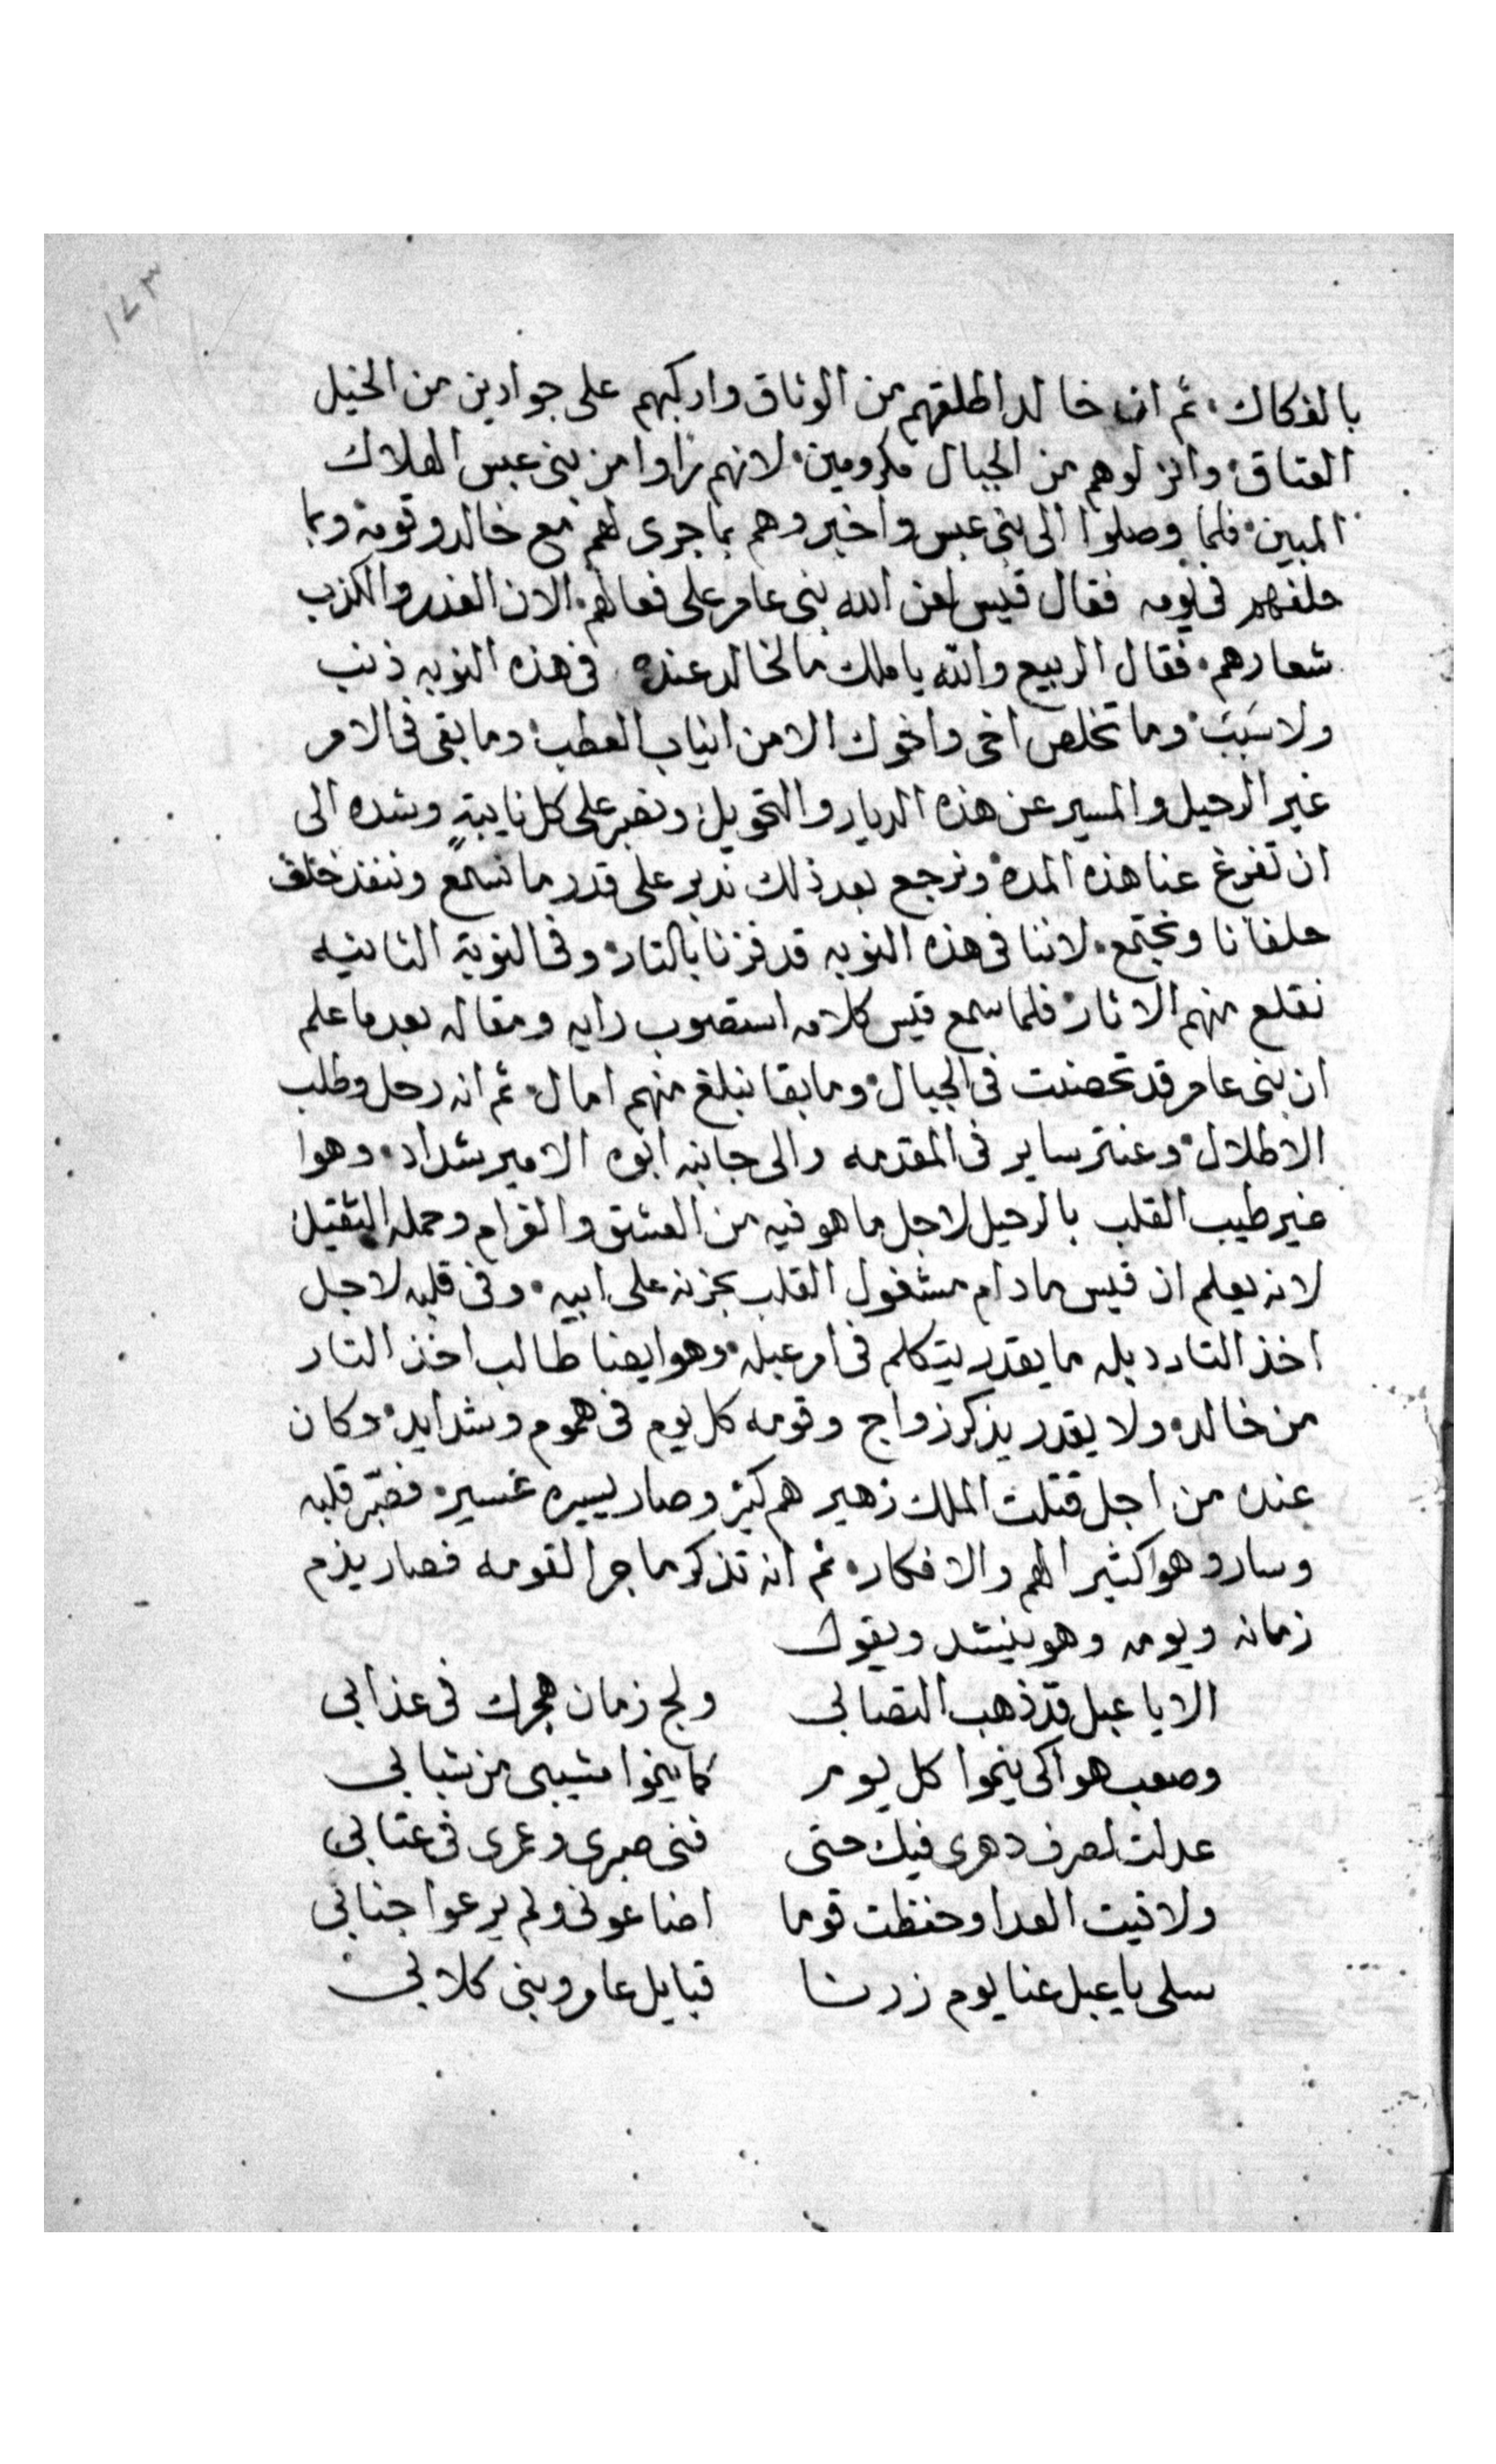 ١٤٣
بالفكاك، ثم ان خالد اطلقهم من الوثاق واركبهم على جوادين من الخيل
العتاق، وانزلوهم من الجبال مكرومين، لانهم راوا من بنى عبس الهلاك
المبين، فلما وصلوا الى بنى عبس واخبروهم بما جرى لهم مع خالد وقومه وبما
حلفهم فى يومه فقال قيس لعن الله بنى عامر على فعالهم، الان الغدر والكذب
شعارهم، فقال الربيع والله يا ملك ما لخالد عنده فى هذه النوبه ذنب
ولا سبب، وما تخلص اخى واخوك الا من انياب العطب، وما بقى فى الامر
غير الرحيل والمسير عن هذه الديار والتحويل، ونصبر على كل نايبةٍ وشده الى
ان تفرغ عنا هذه المده، ونرجع بعد ذلك ندبر على قدر ما نسمع وننفذ خلف
حلفانا ونجتمع، لاننا فى هذه النوبه قد فزنا بالتار، وفى النوبة الثانيه
نقلع منهم الاثار، فلما سمع قيس كلامه استصوب رايه ومقاله بعد ما علم
ان بنى عامر قد تحصنت فى الجبال، وما بقا نبلغ منهم امال، ثم انه رحل وطلب
الاطلال، وعنتر ساير فى المقدمه والى جانبه ابوه الامير شداد، وهوا
غير طيب القلب بالرحيل لاجل ما هو فيه من العشق والغرام وحمله الثقيل،
لانه يعلم ان قيس ما دام مشغول القلب بحزنه على ابيه، وفى قلبه لاجل
اخذ التار دبله ما يقدر يتكلم فى امر عبله، وهو ايضا طالب اخذ التار
من خالد، ولا يقدر يذكر زواج وقومه كل يوم فى هموم وشدايد، وكان
عنده من اجل قتلت الملك زهير هم كثير وصار يسيره عسير، فصبّر قلبه
وسار وهوا كثير الهم والافكار، ثم انه تذكر ما جرا لقومه فصار يذم
زمانه ويومه وهو ينشد ويقول
الا يا عبل قد ذهب التصابى ولج زمان هجرك فى عذابى
وصعب هواكى ينموا كل يوم كما ينموا مشيبى من شبابى
عدلت لصرف دهرى فيك حتى فنى صبرى وعمرى فى عتابى
ولاقيت العدا وحفظت قوما اضاعونى ولم يرعوا جنابى
سلى يا عبل عنا يوم زرنا قبايل عامر وبنى كلابى